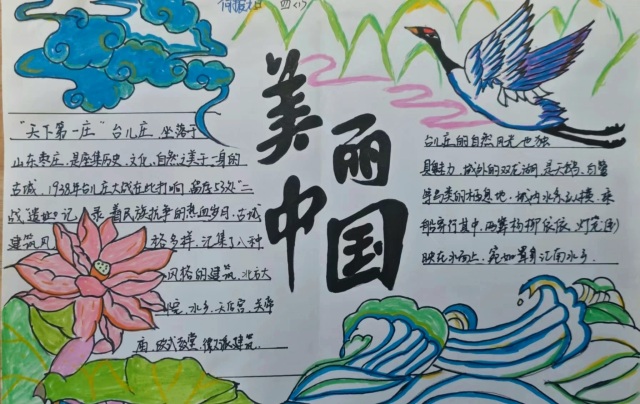 四(1)
美丽
中国
“天下第一庄”台儿庄,坐落于
山东枣庄,是座集历史、文化、自然之美于一身的
古城。1938年台儿庄大战在此打响,留存53处“二
战遗址”记录着民族抗争的热血岁月。古城
建筑风格多样,汇集了八种
风格的建筑,北方大
院、水乡、天后宫、关帝
庙、欧式教堂、徽派建筑。
台儿庄的自然风光也独
具魅力,城外的双龙湖是天鹅、白鹭
等鸟类的栖息地,城内水系纵横,乘
船穿行其中,两岸杨柳依依,灯笼
映在水面上,宛如置身江南水乡。